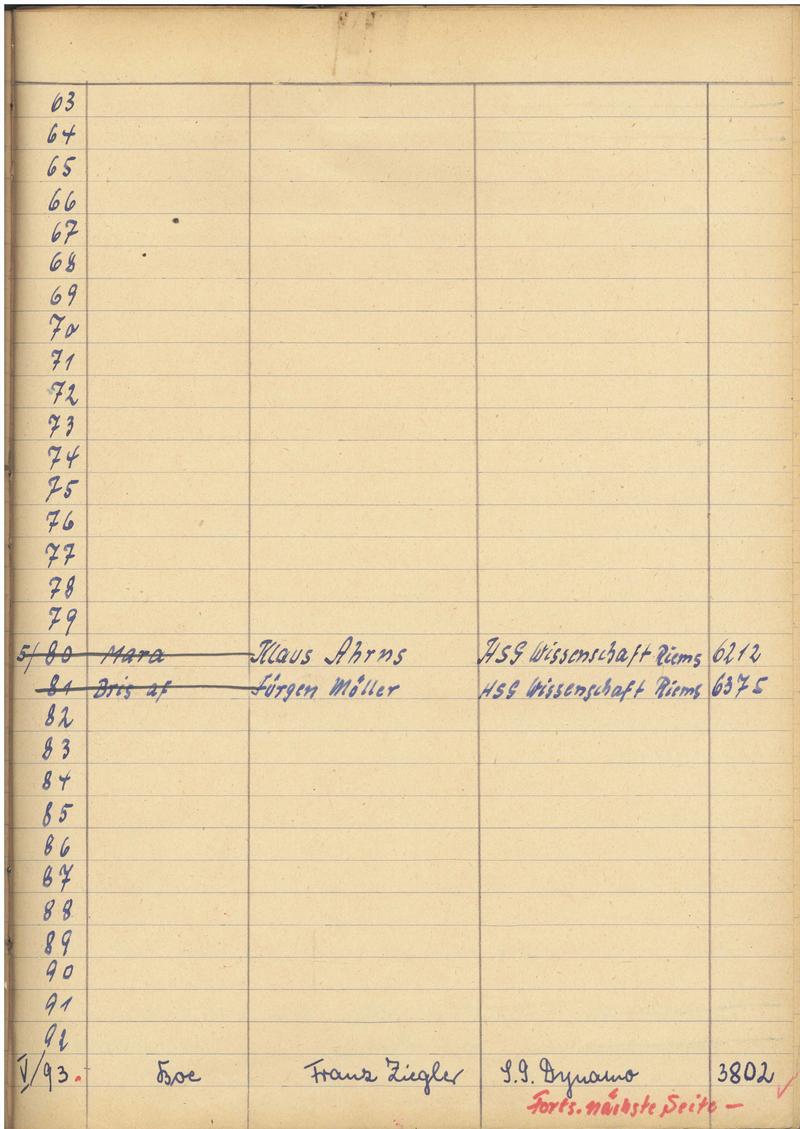 63
64
65
66
67
68
69
70
71
72
73
74
75
76
77
78
79
5/ 80 Mara Klaus Ahrns HSG Wissenschaft Riems 6212
81 Bris af Jürgen Möller HSG Wissenschaft Riems 6375
82
83
84
85
86
87
88
89
90
91
92
V/93. Franz Ziegler S.G. Dynamo 3802
Forts. nächste Seite –